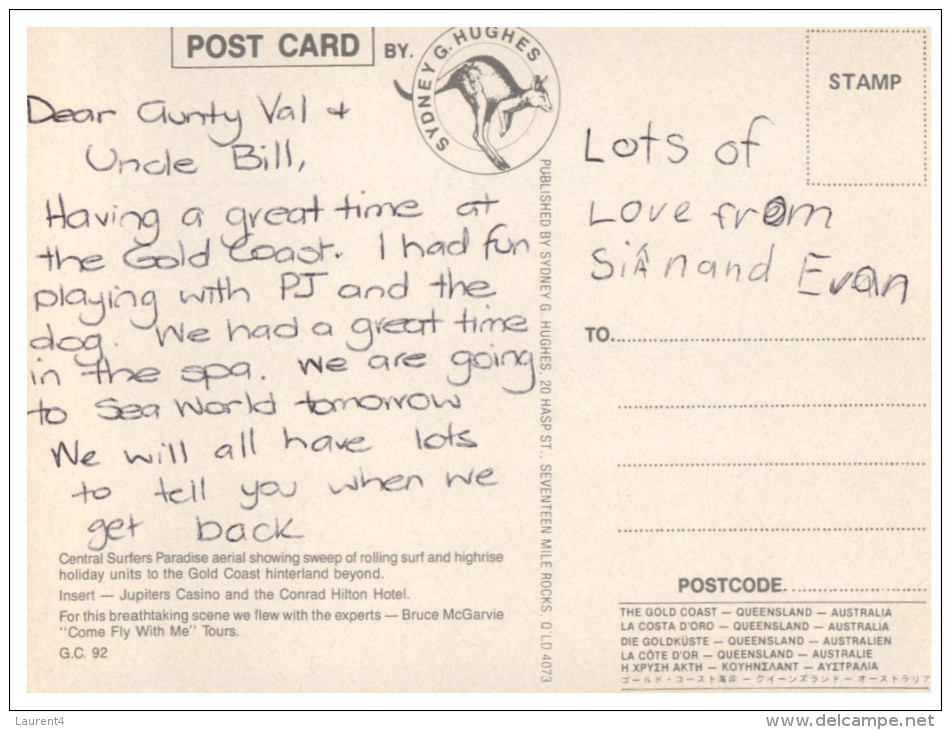 POST CARD BY.
SYDNEY G. HUGHES
STAMP
Dear Aunty Val +
Uncle Bill,
Having a great time at
the Gold Coast. I had fun
playing with PJ and the
dog. We had a great time
in the spa. We are going
to Sea World tomorrow
We will all have lots
to tell you when we
get back
Central Surfers Paradise aerial showing sweep of rolling surf and highrise
holiday units to the Gold Coast hinterland beyond.
Insert — Jupiters Casino and the Conrad Hilton Hotel.
For this breathtaking scene we flew with the experts — Bruce McGarvie
"Come Fly With Me" Tours.
G.C. 92
PUBLISHED BY SYDNEY G. HUGHES. 20 HASP ST., SEVENTEEN MILE ROCKS Q'LD 4073
Lots of
Love from
SiÂn and Evan
TO.
POSTCODE
THE GOLD COAST — QUEENSLAND — AUSTRALIA
LA COSTA D'ORO — QUEENSLAND — AUSTRALIA
DIE GOLDKÜSTE — QUEENSLAND — AUSTRALIEN
LA CÔTE D'OR — QUEENSLAND — AUSTRALIE
Η ΧΡΥΣΗ ΑΚΤΗ — ΚΟΥΗΝΣΛΑΝΤ — ΑΥΣΤΡΑΛΙΑ
ゴールド・コースト海岸 — クイーンズランド — オーストラリア
Laurent4
www.delcampe.net